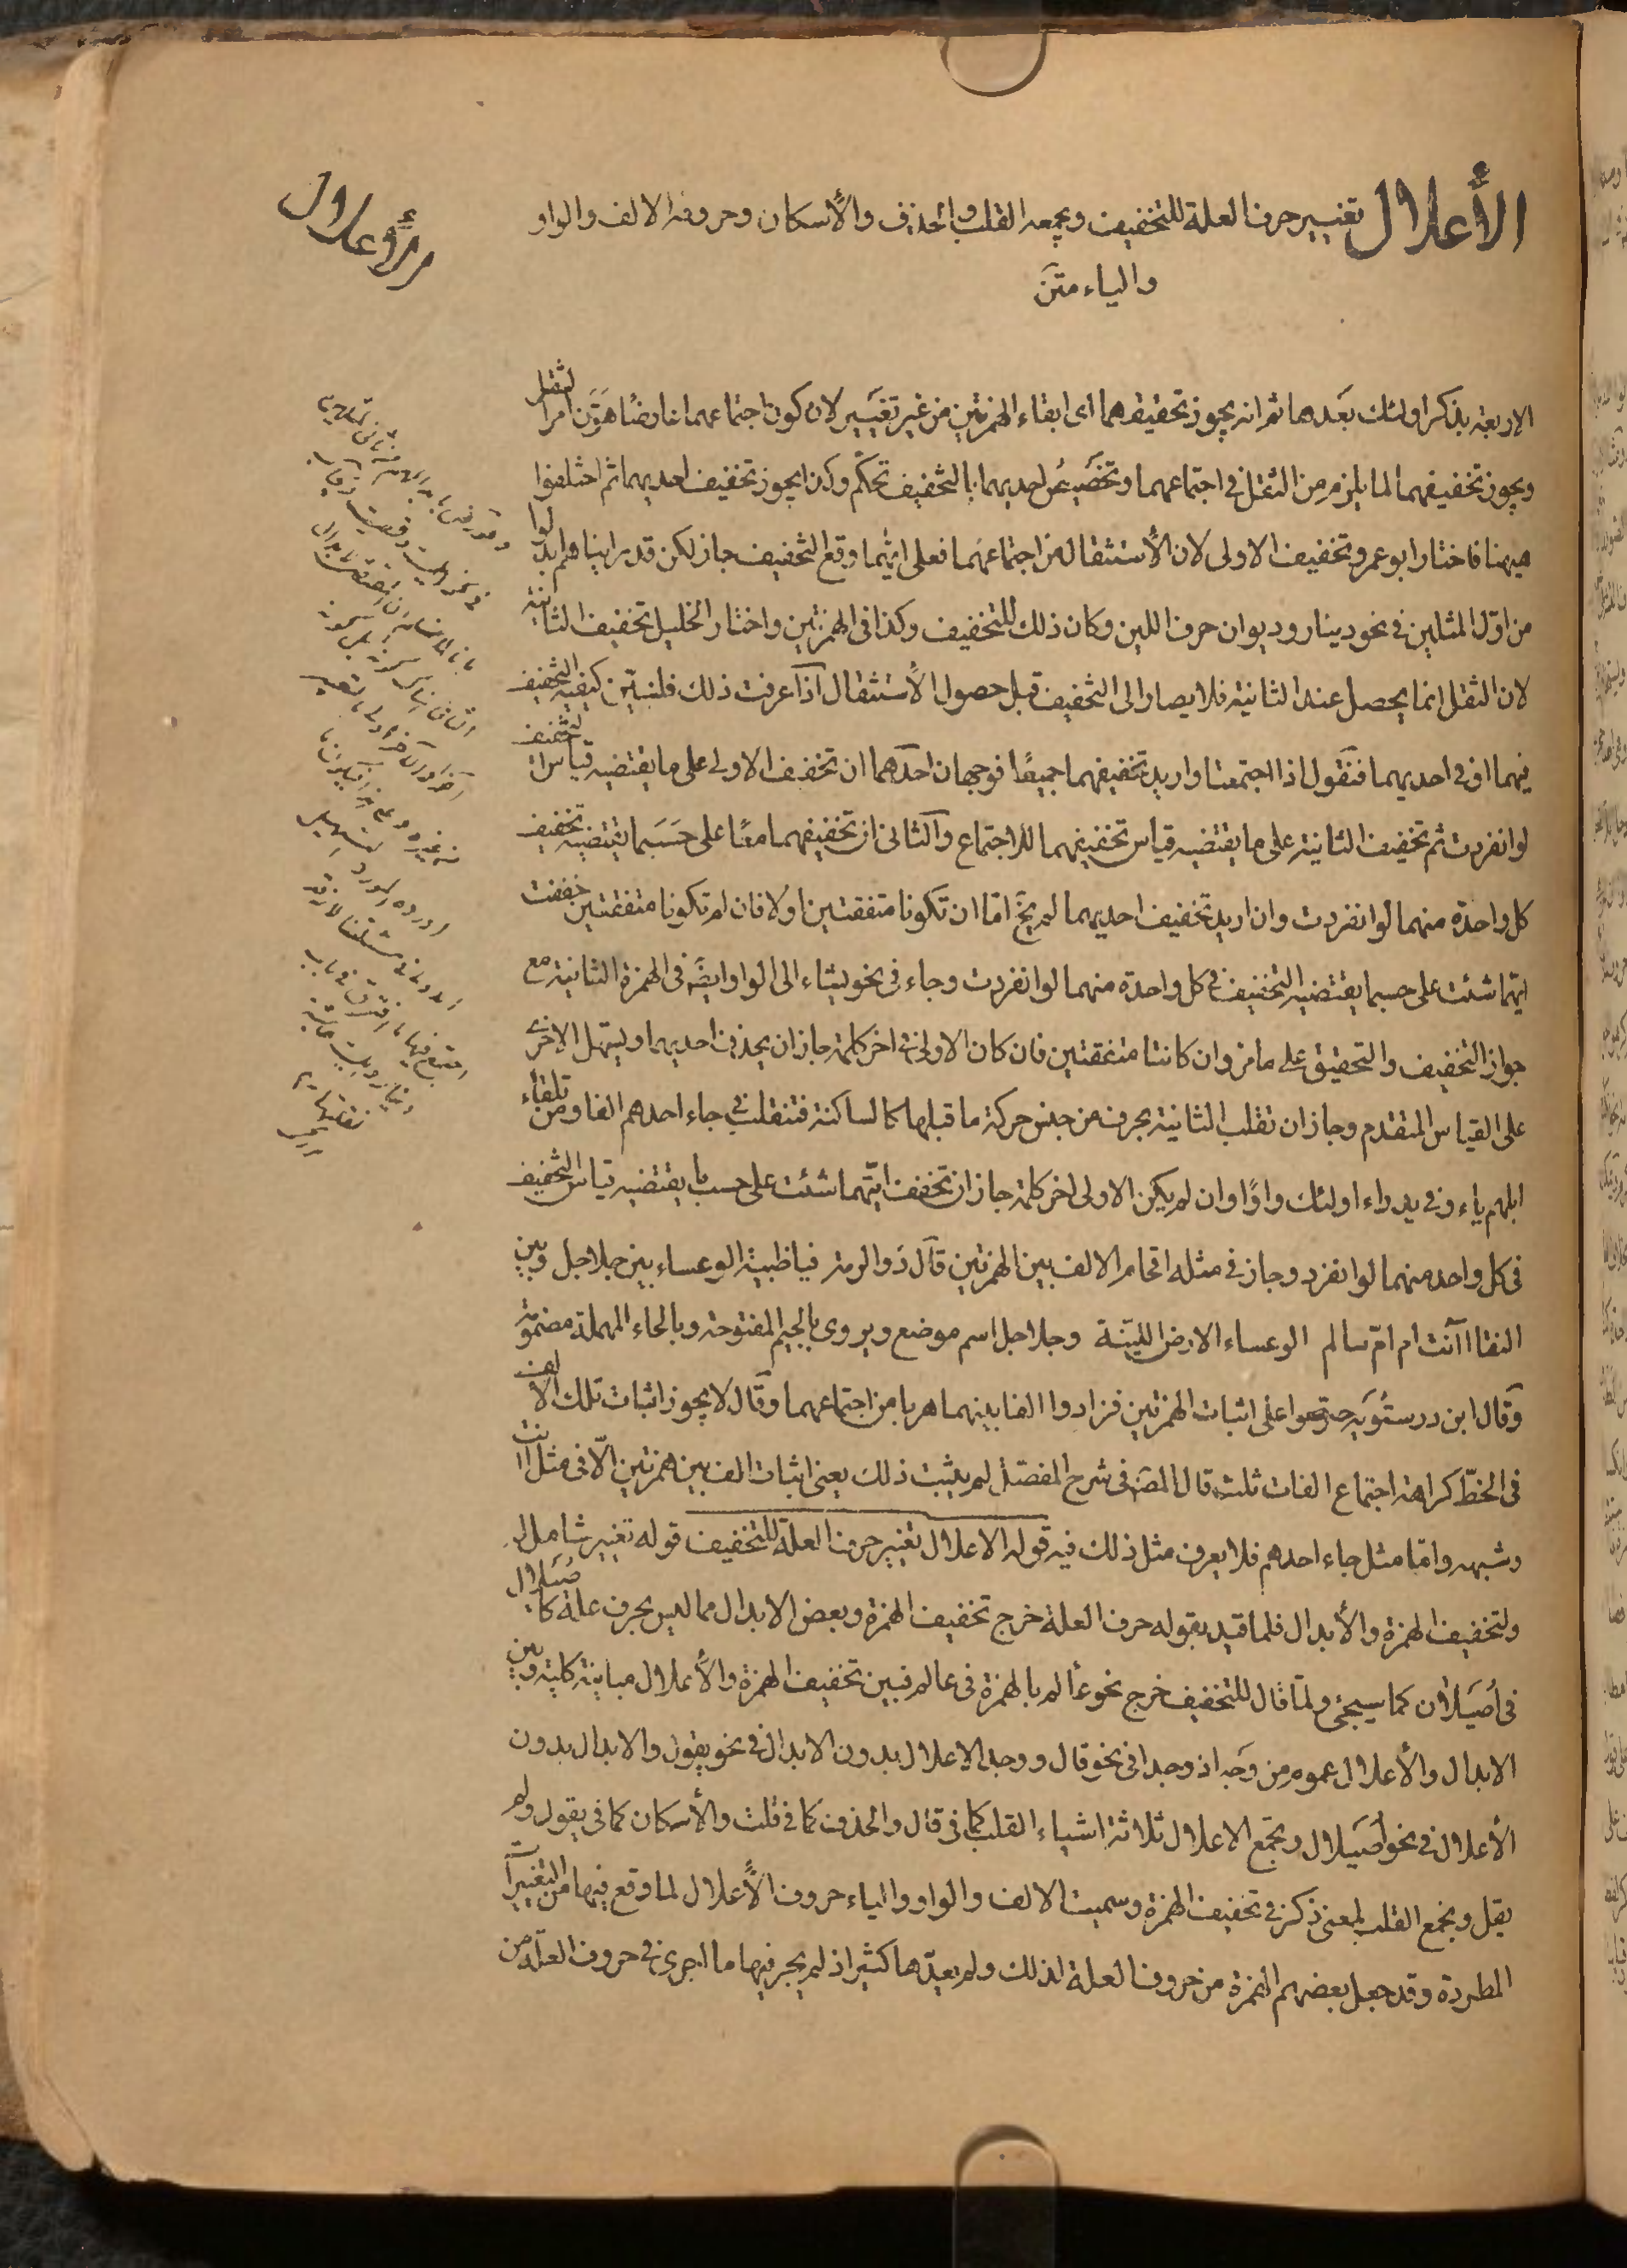 الأعلال تغيير حرف العلة للتخفيف ويجمعه القلب والحذف والأسكان وحروفه الالف والواو
والياء متن
الأعلال
الاربعة بذكر اولئك بعدها ثم انه يجوز تحقيقهما اى ابقاء الهمزتين من غير تغيير لان كون اجتماعهما عارضًا هَوَّن امر الثقل
ويجوز تخفيفهما لما يلزم من الثقل فى اجتماعهما وتخصيص احديهما بالتخفيف تحكّم وكذا يجوز تخفيف احديهما ثم اختلفوا
هيهنا فاختار ابو عمرو تخفيف الاولى لان الأستثقال من اجتماعهما فعلى ايتهما وقع التخفيف جاز لكن قد راينا هم ابدلوا
من اوّل المثلين فى نحو دينار وديوان حرف اللين وكان ذلك للتخفيف وكذا فى الهمزتين واختار الخليل تخفيف الثانية
لان الثقل انما يحصل عند الثانية فلا يصار الى التخفيف قبل حصول الأستثقال اذا عرفت ذلك فلنبيّن كيفية التخفيف
فيهما او فى احديهما فنقول اذا اجتمعتا واريد تخفيفهما جميعًا فوجهان احدهما ان تخفيف الاولى على ما يقتضيه قياس التخفيف
لو انفردت ثم تخفيف الثانية على ما يقتضيه قياس تخفيفهما للاجتماع والثانى ان تخفيفهما معًا على حسب ما يقتضيه تخفيف
كل واحدة منهما لو انفردت وان اريد تخفيف احديهما لم يخ امّا ان تكونا متفقتين اولا فان لم تكونا متفقتين خففت
ايتهما شئت على حسبما يقتضيه التخفيف فى كل واحدة منهما لو انفردت وجاء فى نحو يشاء الى الواو ايضً فى الهمزة الثانية مع
جواز التخفيف والتحقيق على ما مر وان كانتا متفقتين فان كان الاولى فى اخر كلمة جاز ان يحذف احديهما ويسهل الاخرى
على القياس المتقدم وجاز ان تقلب الثانية بحرف من جنس حركة ما قبلها كالساكنة فتنقلب فى جاء احدهم الفا ومن تلقاء
ابلهم ياء وفى يدراء اولئك واوًا وان لم يكن الاولى اخر كلمة جاز ان تخفف ايّتهما شئت على حسب ما يقتضيه قياس التخفيف
فى كل واحد منهما لو انفرد وجاز فى مثله اقحام الالف بين الهمزتين قال ذو الرمة فيا ظبية الوعساء بين جلاجل وبين
النقا اآنت ام امّ سالم الوعساء الارض الليّنة وجلاجل اسم موضع ويروى بالجيم المفتوحة وبالحاء المهملة مضمومة
وقال ابن درستويه على اثبات الهمزتين فزادوا الفا بينهما هربا من اجتماعهما وقال لا يجوز اثبات تلك الالف
فى الخطّ كراهة اجتماع الفات ثلث قال المصَ فى شرح المفصّل لم يثبت ذلك يعنى اثبات الف بين همزتين الّا فى مثل اانت
وشبهه وامّا مثل جاء احدهم فلا يعرف مثل ذلك فيه قوله الاعلال تغيير حرف العلة للتخفيف قوله تغيير شامل له
ولتخفيف الهمزة والأبدال فلما قيد بقوله حرف العلة خرج تخفيف الهمزة وبعض الابدال مما ليس بحرف علة كاُصَيلال
فى اُصَيلان كما سيجئ ولمّا قال للتخفيف خرج نحو عألم بالهمزة فى عالم فبين تخفيف الهمزة والأعلال مباينة كلية وبين
الابدال والأعلال عموم من وجه اذ وجدا فى نحو قال ووجد الاعلال بدون الابدال فى نحو يقول والابدال بدون
الأعلال فى نحو اُصَيلال ويجمع الاعلال ثلاثة اشياء القلب كما فى قال والحذف كما فى قلت والأسكان كما فى يقول ولم
يقل ويجمع القلب لمعنى ذكر فى تخفيف الهمزة وسميت الالف والواو والياء حروف الأعلال لما وقع فيها من التغييرات
المطردة وقد جعل بعضهم الهمزة من حروف العلة لذلك ولم يعدّها كثير اذ لم يجر فيها ما اجرى فى حروف العلّة من